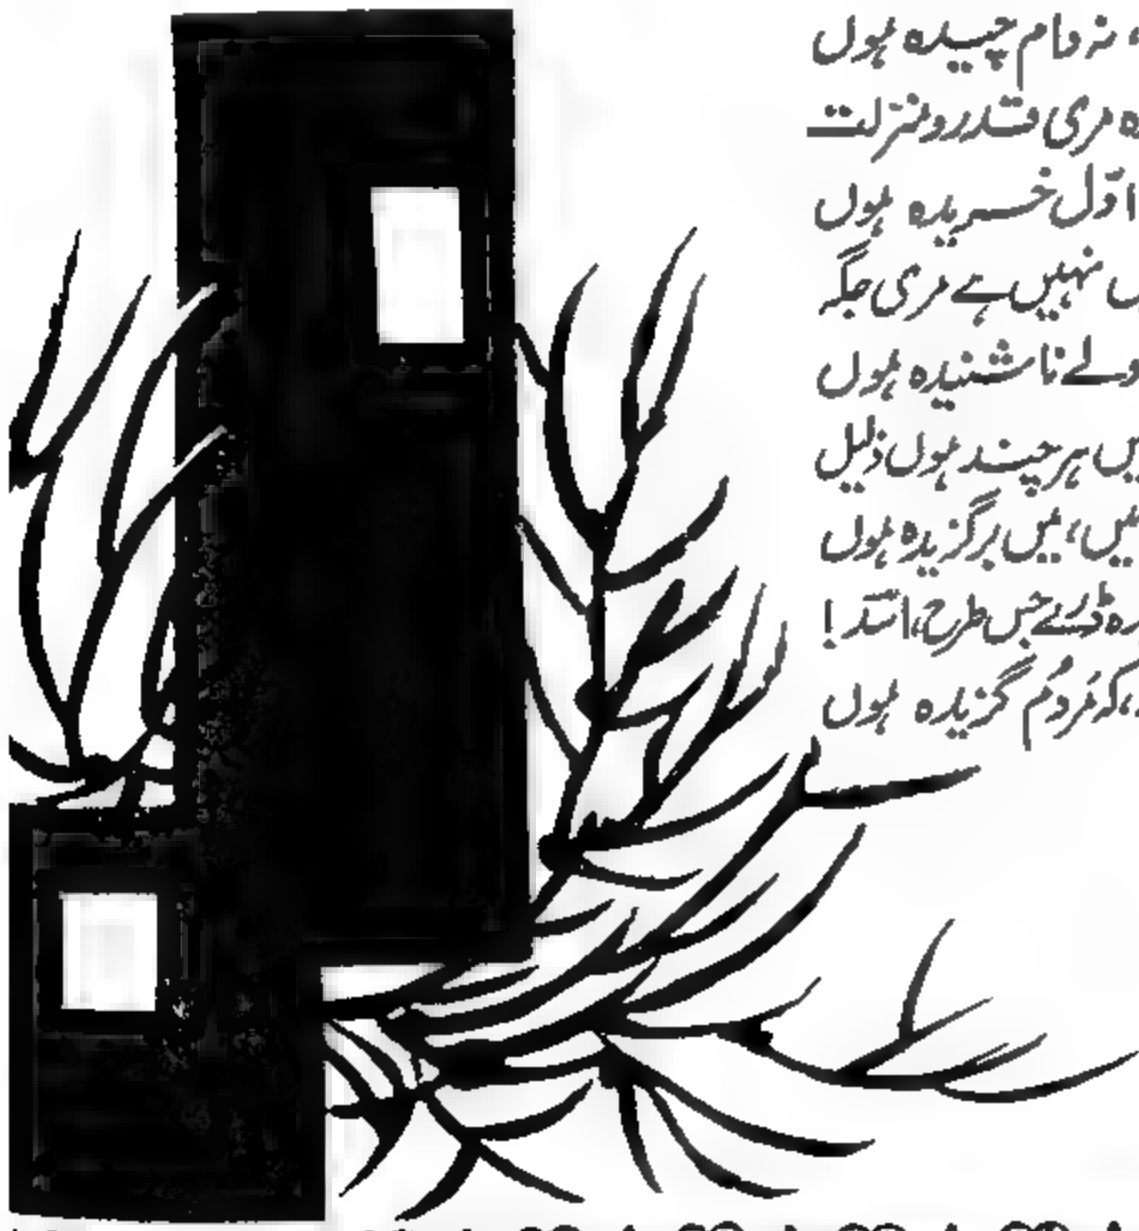 نہ دام چیدہ ہوں
مری قدر و منزلت
اوّل خریدہ ہوں
نہیں ہے مری جگہ
ولے ناشنیدہ ہوں
ہر چند ہوں ذلیل
میں برگزیدہ ہوں
ڈرے جس طرح، اسدؔ!
کہ مَردُم گزیدہ ہوں